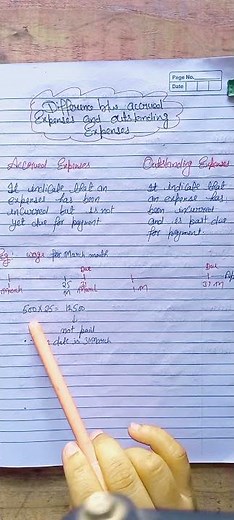 Page No.
Date
Difference btw accrued
Expenses and outstanding
Expenses
Accrued Expenses
It indicate that an
expenses has been
incurred but is not
yet due for payment
Outstanding Expenses
It indicate that
an expense has
been incurred
and is past due
for payment.
Eg: wages for March month
Due
Due
25
31
1
31
March
M
March
1 M
M
500 x 25 = 12,500
↓
not paid
date is 31 March